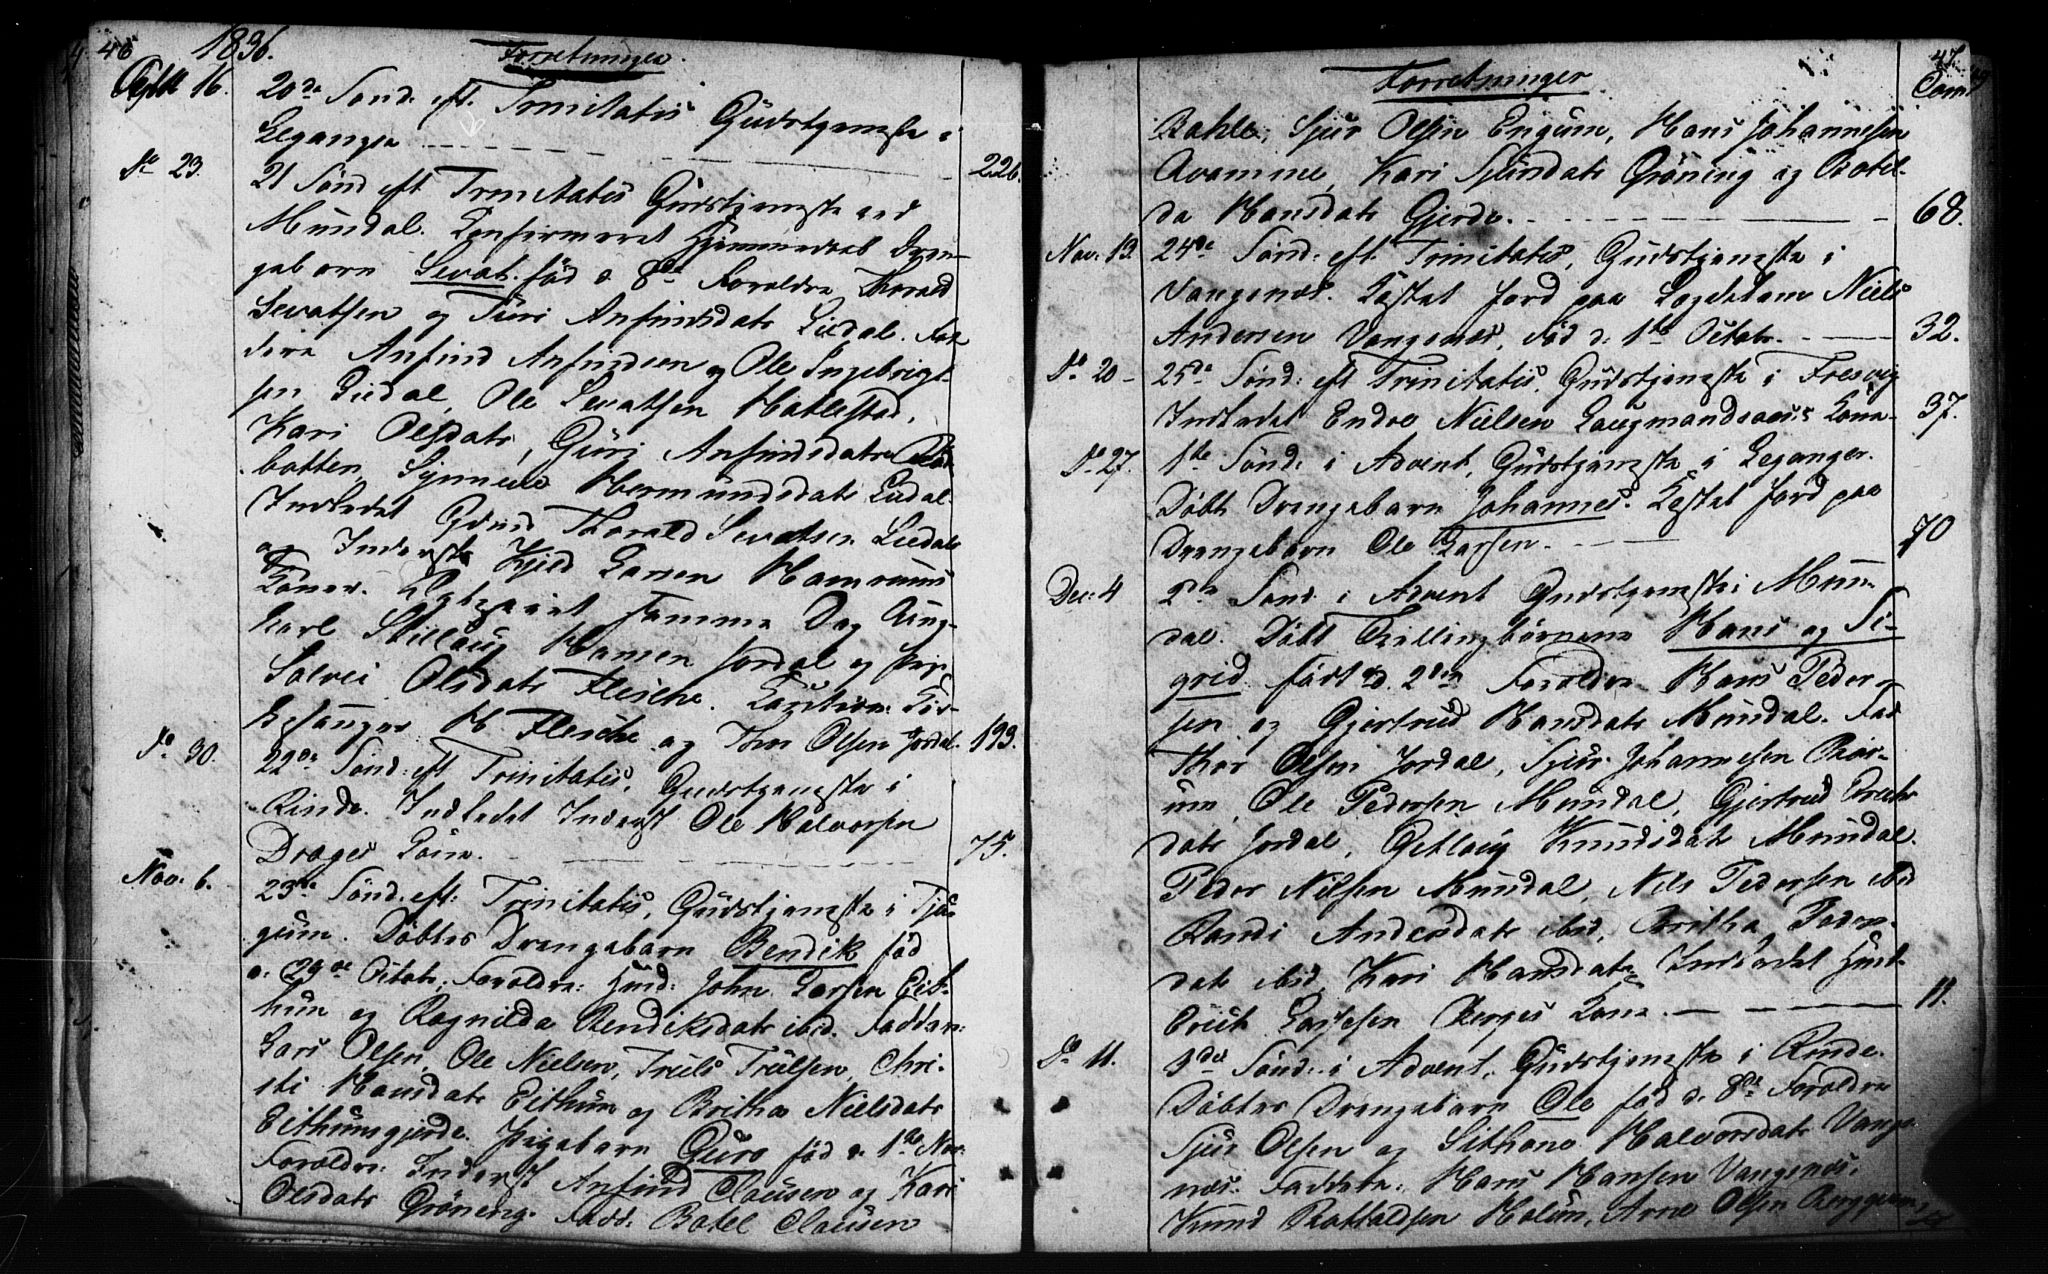 46 1836. Forretninger.
16. 20de Sønd. eft. Trinitatis Gudstjeneste i
Leganger 226.
Do 23. 21 Sønd eft Trinitatis Gudstjeneste ved
Mundal. Confirmeret Hjemmedøbt Dren-
gebarn Sevat. fød d 8de Forældre Thorald
Sevatsen og Turi Anfindsdatr Liedal. Fad
dere Anfind Anfindsen og Ole Ingebrigt-
sen Liedal, Ole Sevatsen Hatlestad,
Kari Olsdatr, Guri Anfindsdatr
botten, Synneve Hermundsdatr Liedal.
Indledet Gmd Thorald Sevatsen Liedals
og Inderste Kjeld Larsen Hamrums
Koner. Samme Dag Ung-
karl Stillaug Hansen Jordal og Pige
Solvei Olsdatr Flesche.
H Flesche og Thor Olsen Jordal. 193.
Do 30. 22de Sønd: eft Trinitatis, Gudstjeneste i
Rinde. Indledet Inderst Ole Halvorsen
Drages Kone. 75.
Nov. 6. 23de Sønd. eft: Trinitatis, Gudstjeneste i Tjug-
gum. Døbtes Drengebarn Bendik fød
d. 29de Octobr; Forældre: Husd: John Larsen Eit-
hun og Ragnilda Bendiksdatr ibid. Faddere:
Lars Olsen, Ole Nielsen, Truls Trulsen, Chri-
sti Hansdatr Eithun og Britha Nielsdatr
Eithunsgjerde. Pigebarn Guro fød d. 1ste Nov:
Forældre: Inderst Anfind Clausen og Kari
Olsdatr Grøneng. Fadd: Botel Clausen
Forretninger 47.
Bahle, Sjur Olsen Engum, Hans Johannesen
Qvamme, Kari Grøning og Botil-
da Hansdatr Gjerde. 68.
Nov: 13. 24de Sønd: eft. Trinitatis, Gudstjeneste i
Vangsnes. Kastet Jord paa Niels
Andersen Vangsnes, fød d. 1ste Octobr. 32.
Do 20 25de Sønd: eft Trinitatis. Gudstjeneste i Fresvig
Indledet Endre Nielsen Kone 37.
Do 27. 1ste Sønd: i Advent, Gudstjeneste i Leganger.
Døbt Drengebarn Johannes. Kastet Jord paa
Drengebarn Ole Larsen. 70
Dec: 4 2den Sønd. i Advent Gudstjeneste i Mun-
dal. Døbt Tvillingbørnene Hans og Si-
grid født d. 2den Forældre Hans Peder-
sen og Gjertrud Hansdatr Mundal. Fad
Thor Olsen Jordal, Sjur Johannesen Bør-
um, Ole Pedersen Mundal, Gjertrud
datr Jordal, Knudsdatr Mundal.
Peder Nilsen Mundal, Nils Pedersen ibid
Randi Andersdatr ibid, Britha Peders-
datr ibid, Kari Hansdatr. Indledet Husd-
Bergs Kone 11.
Do 11. 3die Sønd: i Advent, Gudstjeneste i Rinde.
Døbtes Drengebarn Ole fød d. 8de Forældre
Sjur Olsen og Halvorsdatr Vangs-
nes. Faddere: Hans Hansen Vangsnes,
Knud Holum, Arne Olsen